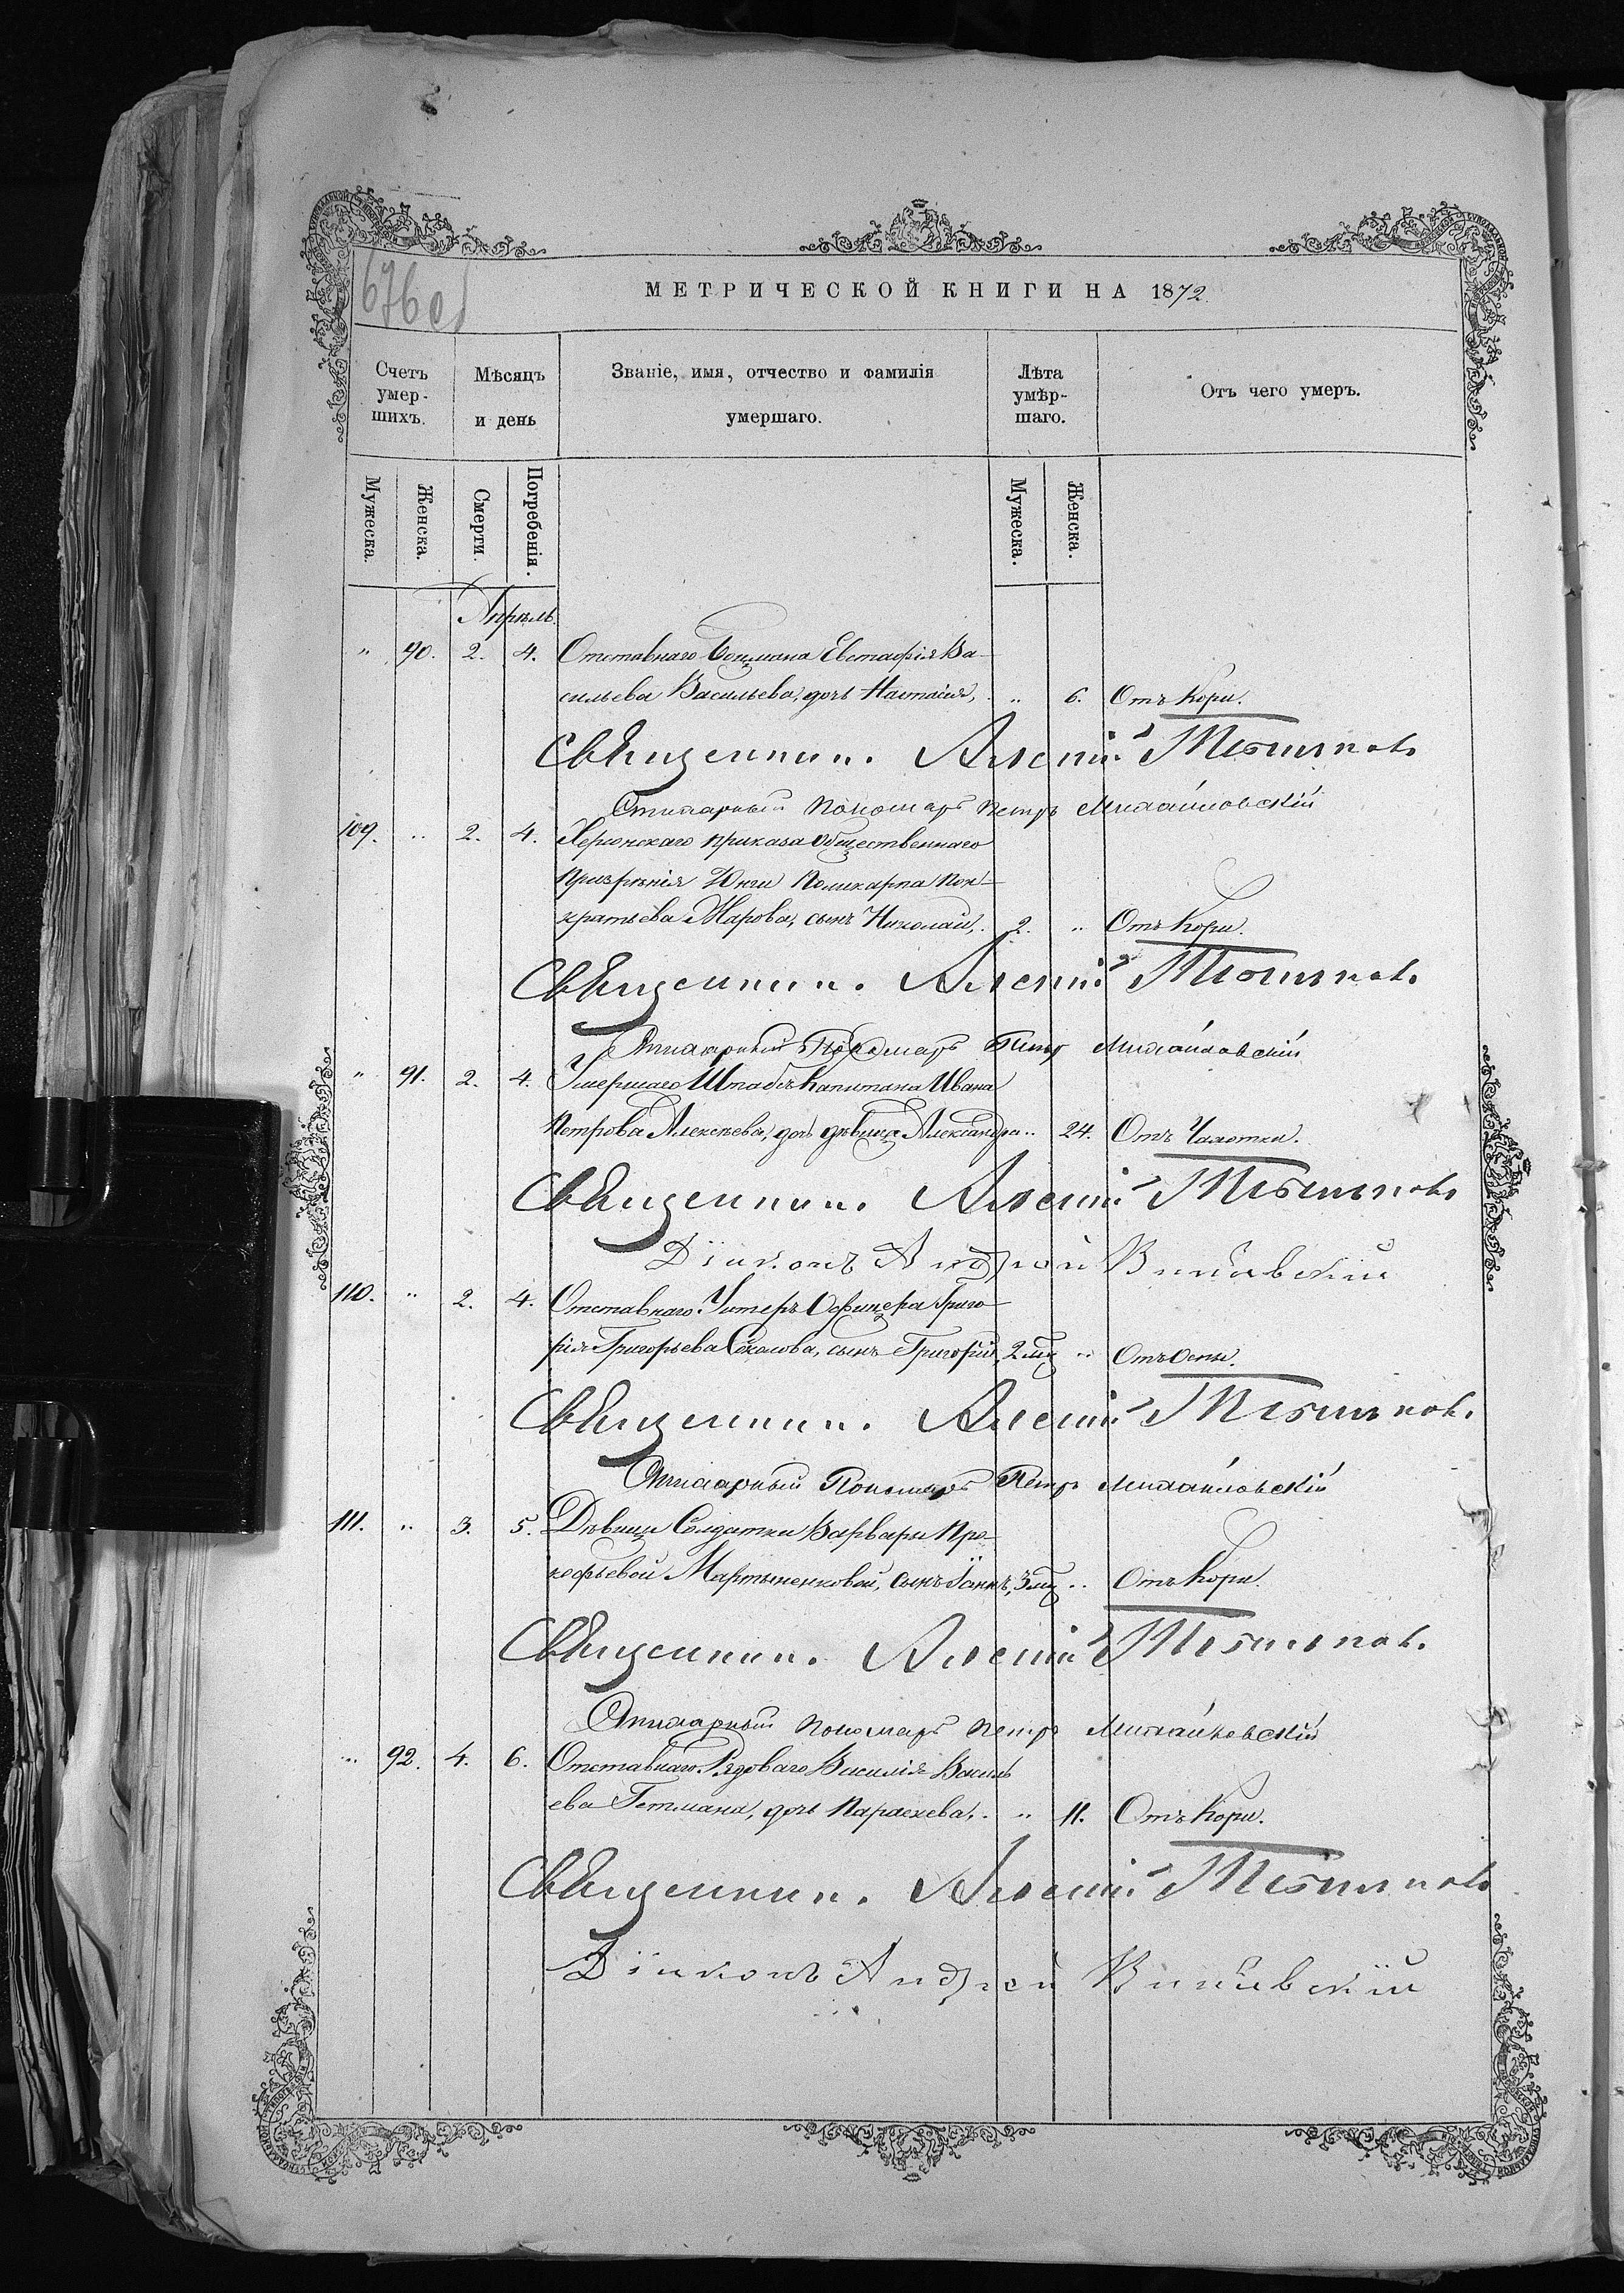 676 об
МЕТРИЧЕСКОЙ КНИГИ НА 1872
Счетъ умер-шихъ.
Мѣсяцъ и день
Званіе, имя, отчество и фамилія умершаго.
Лѣта умѣр-шаго.
Отъ чего умеръ.
Мужеска.
Женска.
Смерти.
Погребенія.
Мужеска.
Женска.
Апрѣль.
" 90. 2. 4. Отставнаго Боцмана Евстафія Ва-
сильева Васильева, дочь Настасія, " 6. Отъ Кори.
Священникъ Алексій
Стихарный Пономарь Петръ Михайловскій
109. " 2. 4. Херсонскаго приказа Общественнаго
Призрѣнія Юнги Поликарпа Пон-
кратьева Марова, сынъ Николай, 2. " Отъ Кори.
Священникъ Алексій
Стихарный Пономарь Петръ Михайловскій
" 91. 2. 4. Умершаго Штабсъ Капитана Ивана
Петрова Алексѣева, дочь дѣвица Александра " 24. Отъ Чахотки.
Священникъ Алексій
Діаконъ Андрей
110. " 2. 4. Отставнаго Унтеръ Офицера Григо-
рія Григорьева Соколова, сынъ Григорій, 2 мц " Отъ Оспы.
Священникъ Алексій
Стихарный Пономарь Петръ Михайловскій
111. " 3. 5. Дѣвицы Солдатки Варвары Про-
кофьевой Мартыненковой, сынъ Іоаннъ, 3 мц " Отъ Кори.
Священникъ Алексій
Стихарный Пономарь Петръ Михайловскій
" 92. 4. 6. Отставнаго Рядоваго Василія Василь
ева Гетмана, дочь Параскева, " 11. Отъ Кори.
Священникъ Алексій
Діаконъ Андрей